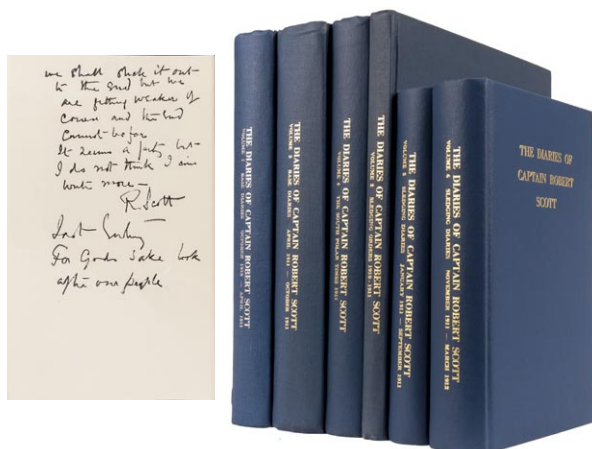 we shall stick it out
to the end but we
are getting weaker of
course and the end
cannot be far
It seems a pity but
I do not think I can
write more —
R. Scott
Last Entry
For Gods sake look
after our people
THE DIARIES OF CAPTAIN ROBERT SCOTT
VOLUME 1 BASE DIARIES OCTOBER 1910 — APRIL 1911
THE DIARIES OF CAPTAIN ROBERT SCOTT
VOLUME 2 BASE DIARIES APRIL 1911 — OCTOBER 1911
THE DIARIES OF CAPTAIN ROBERT SCOTT
VOLUME 4 THE SOUTH POLAR TIMES 1911
THE DIARIES OF CAPTAIN ROBERT SCOTT
VOLUME SLEDGING ORDERS
THE DIARIES OF CAPTAIN ROBERT SCOTT
VOLUME SLEDGING DIARIES JANUARY 1911 — SEPTEMBER 1911
THE DIARIES OF CAPTAIN ROBERT SCOTT
VOLUME 6 SLEDGING DIARIES NOVEMBER 1911 — MARCH 1912
THE DIARIES OF
CAPTAIN ROBERT
SCOTT